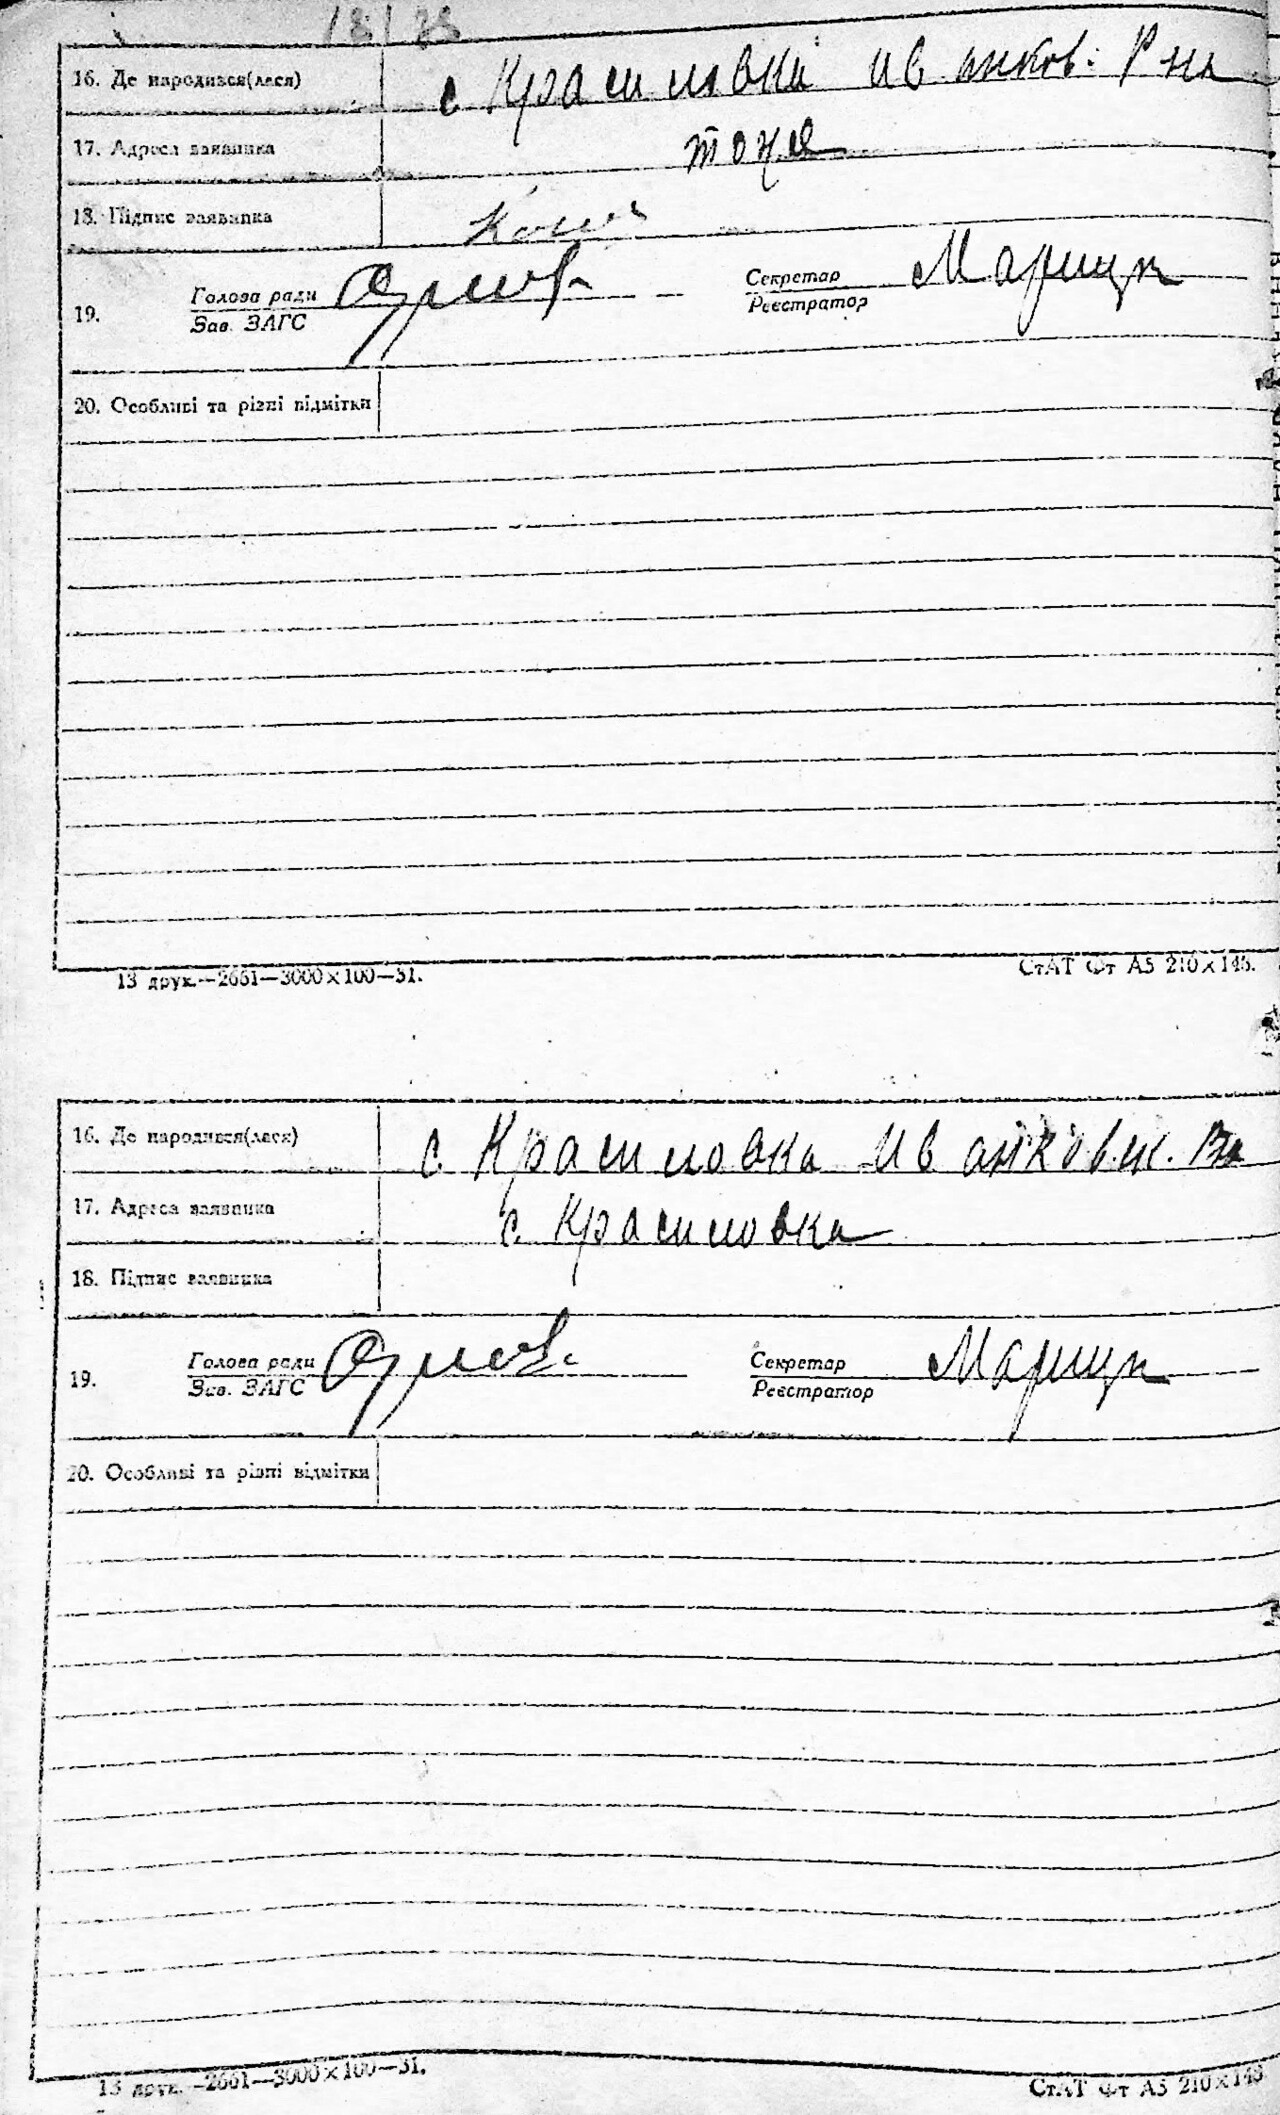 18/78
16. Де народився(лася) с Красиловка Иванков. Р на
17. Адреса заявника тоже
18. Підпис заявника
19. Голова ради Секретар
Зав. ЗАГС Реєстратор
20. Особливі та різні відмітки
13 друк.—2661—3000×100—31. СтАТ Фт А5 210×148.
16. Де народився(лася) с. Красиловка Иванковск.
17. Адреса заявника с. Красиловка
18. Підпис заявника
19. Голова ради Секретар
Зав. ЗАГС Реєстратор
20. Особливі та різні відмітки
13 друк.—2661—3000×100—31. СтАТ Фт А5 210×148